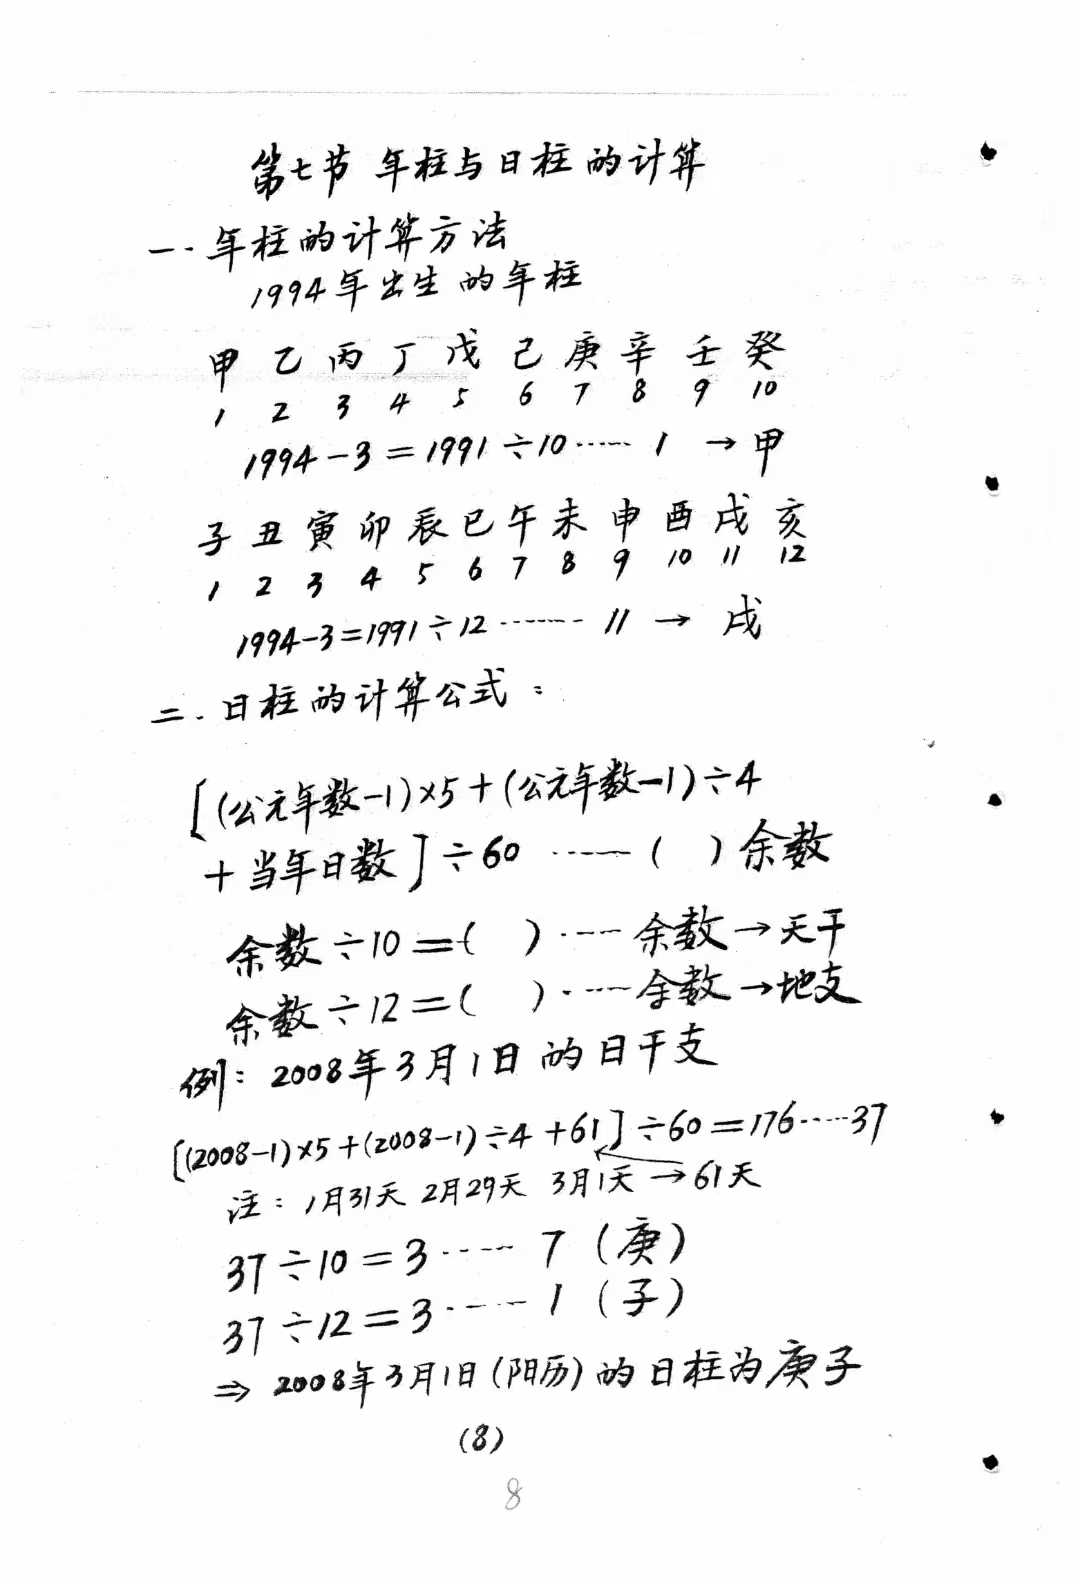 第七节 年柱与日柱的计算
一.年柱的计算方法
1994年出生的年柱
甲 乙 丙 丁 戊 己 庚 辛 壬 癸
1 2 3 4 5 6 7 8 9 10
1994-3=1991÷10…… 1 → 甲
子 丑 寅 卯 辰 巳 午 未 申 酉 戌 亥
1 2 3 4 5 6 7 8 9 10 11 12
1994-3=1991÷12…… 11 → 戌
二.日柱的计算公式:
[(公元年数-1)×5+(公元年数-1)÷4
+当年日数]÷60 ……( )余数
余数÷10=( )……余数→天干
余数÷12=( )……余数→地支
例:2008年3月1日的日干支
[(2008-1)×5+(2008-1)÷4+61]÷60=176……37
注:1月31天 2月29天 3月1天→61天
37÷10=3……7(庚)
37÷12=3……1(子)
⇒ 2008年3月1日(阳历)的日柱为庚子
(8)
8